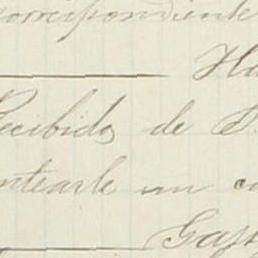 correspondiente
Ha
Recibido de S.
ntearle un c
Gast